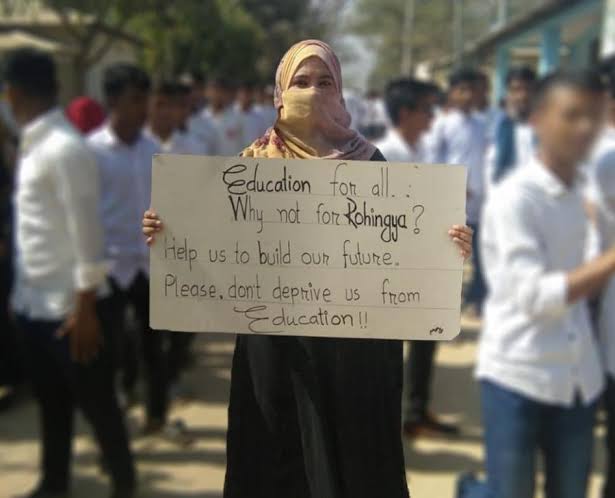 Education for all. :
Why not for Rohingya?
Help us to build our future.
Please, dont deprive us from
Education!!